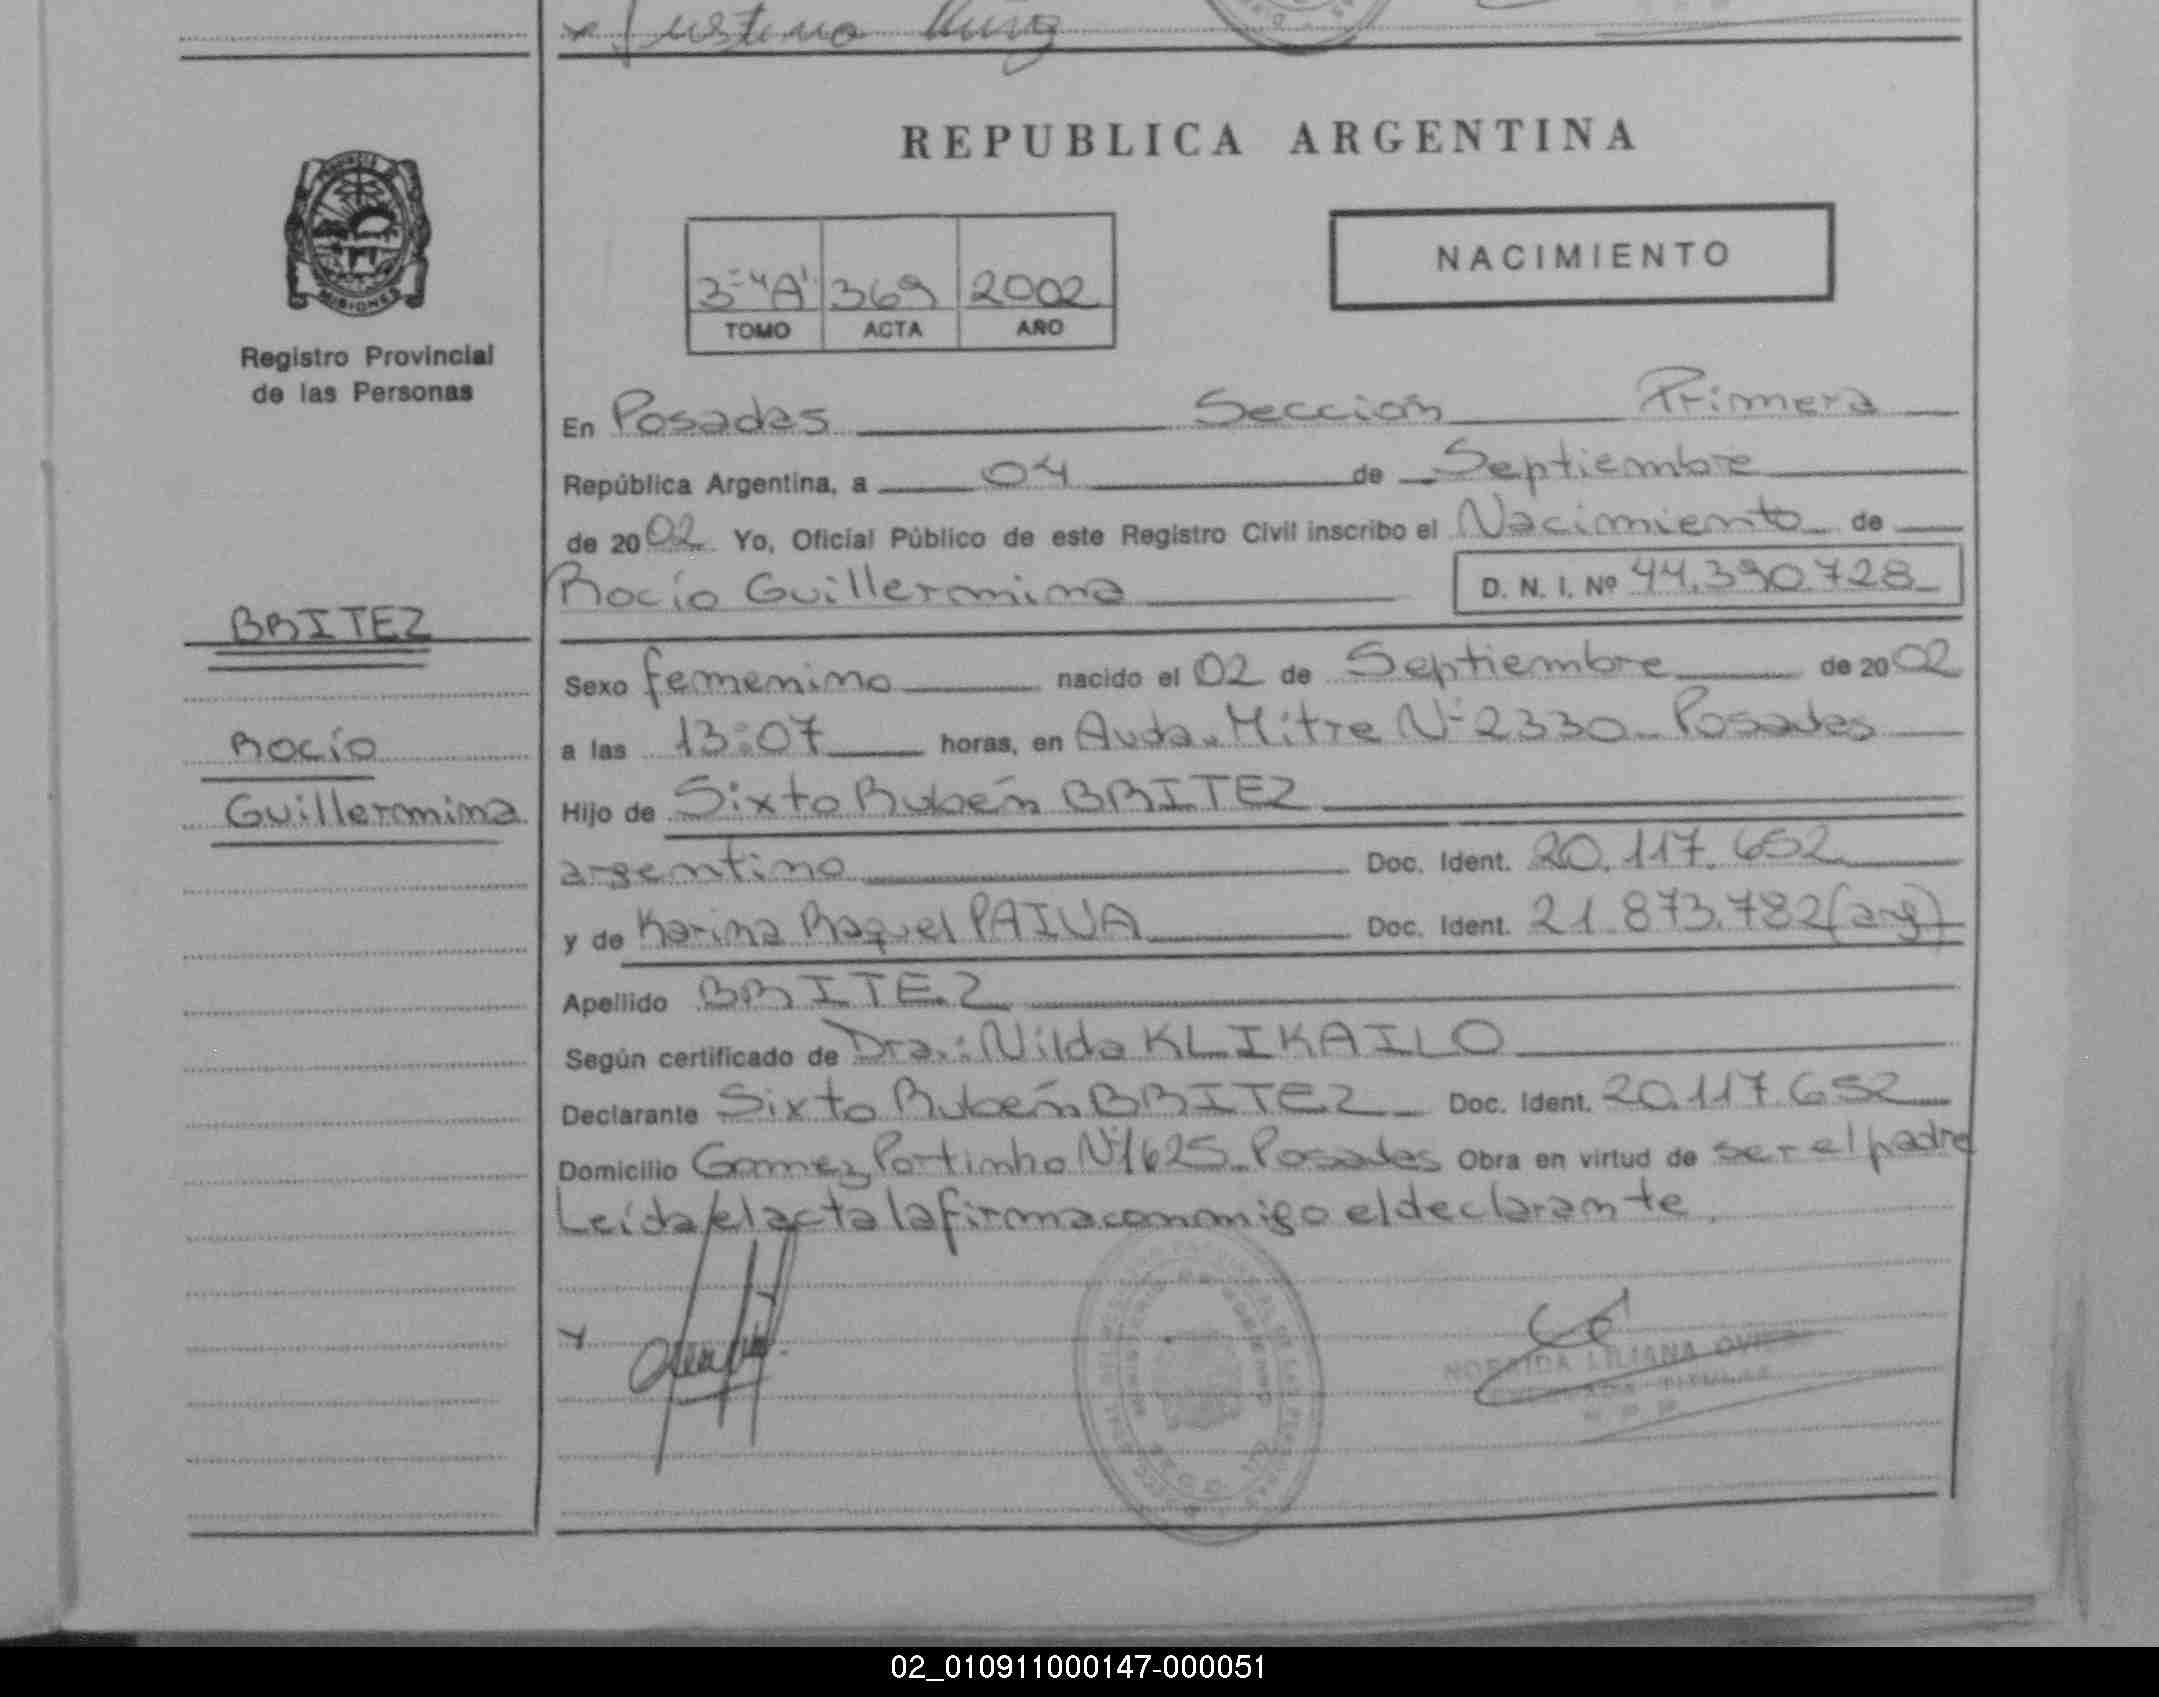 REPUBLICA ARGENTINA
NACIMIENTO
3=“A” 369 2002
TOMO ACTA AÑO
PROVINCIA
MISIONES
Registro Provincial
de las Personas
En Posadas Sección Primera
República Argentina, a 04 de Septiembre
de 2002 Yo, Oficial Público de este Registro Civil inscribo el Nacimiento de
Rocío Guillermina D. N. I. Nº 44.390.728
BRITEZ
Rocío
Guillermina
Sexo femenino nacido el 02 de Septiembre de 2002
a las 13:07 horas, en Avda. Mitre Nº 2330 Posadas
Hijo de Sixto Rubén BRITEZ
argentino Doc. Ident. 20.117.652
y de Karina Raquel PAIVA Doc. Ident. 21.873.782 (arg)
Apellido BRITEZ
Según certificado de Dra.: Nilda KLIKAILO
Declarante Sixto Rubén BRITEZ Doc. Ident. 20.117.652
Domicilio Gomez Portinho Nº 1625 Posadas Obra en virtud de ser el padre
Leída el acta la firma conmigo el declarante.
LILIANA
TITULAR
02_010911000147-000051